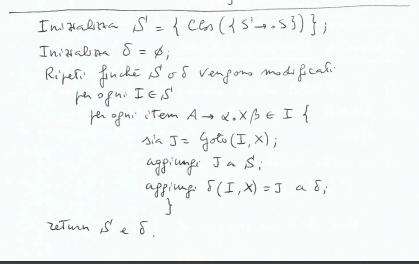 Inizializza S = { Clos ( { S' → . S } ) } ;
Inizializza δ = ∅ ;
Ripeti finché S o δ vengono modificati
per ogni I ∈ S
per ogni item A → α . X β ∈ I {
sia J = Goto ( I , X ) ;
aggiungi J a S ;
aggiungi δ ( I , X ) = J a δ ;
}
return S e δ .